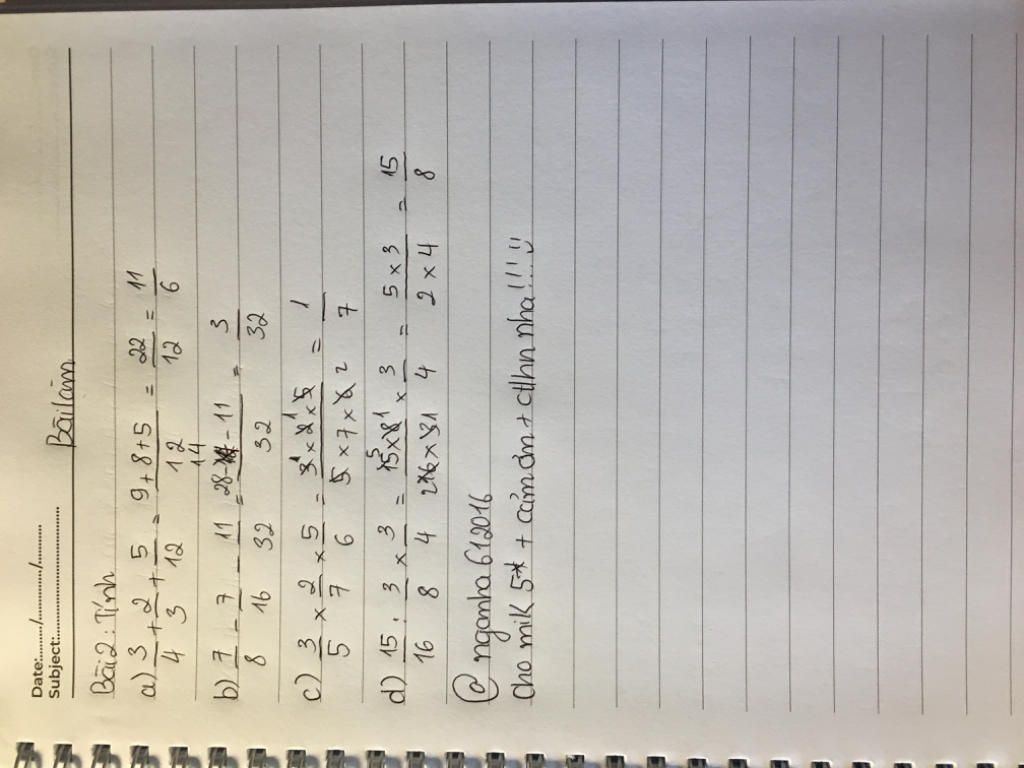 Date:........./........./.........
Subject:..............................
Bài làm
Bài 2: Tính
a) 3/4 + 2/3 + 5/12 = 9+8+5/12 = 22/12 = 11/6
b) 7/8 - 7/16 - 11/32 = 28-14-11/32 = 3/32
c) 3/5 × 2/7 × 5/6 = 3 1 × 2 1 × 5/5 × 7 × 6 2 = 1/7
d) 15/16 : 3/8 × 3/4 = 15 5 × 8 1/16 2 × 3 1 × 3/4 = 5 × 3/2 × 4 = 15/8
@ nganha612016
Cho mik 5* + cảm ơn + ctlhn nha!!!!